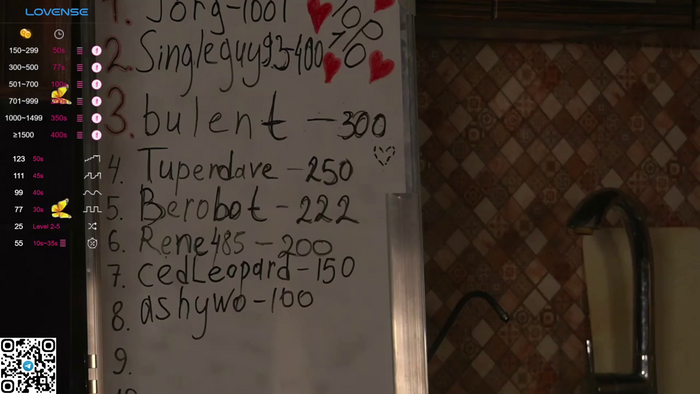 LOVENSE
150~299 50s
300~500 77s
501~700 100s
701~999
1000~1499 350s
≥1500 400s
123 50s
111 45s
99 40s
77 30s
25 Level 2-5
55 10s~35s
1. Jorg-1001
TOP
2. Singleguy93-400
3. bulent - 300
4. Tuperdave - 250
5. Berobot - 222
6. Rene485 - 200
7. cedLeopard - 150
8. ashywo - 100
9.